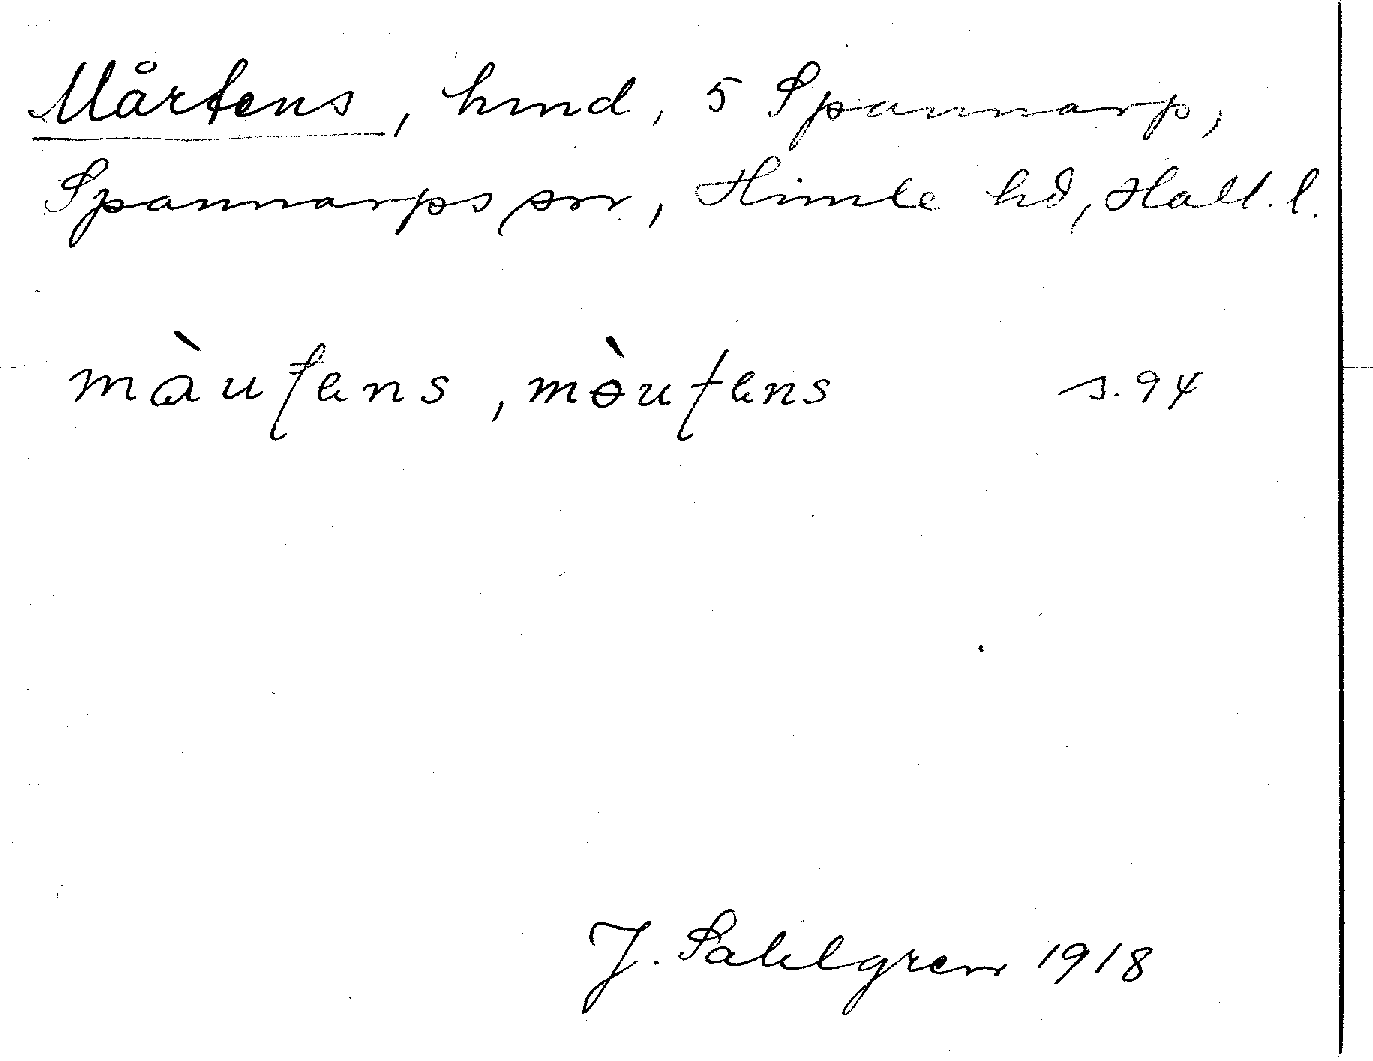 Mårtens, hmd, 5 Spannarp,
Spannarps sn, Himle hd, Hall. l.
màuʈens, mòuʈens s. 94
J. Sahlgren 1918